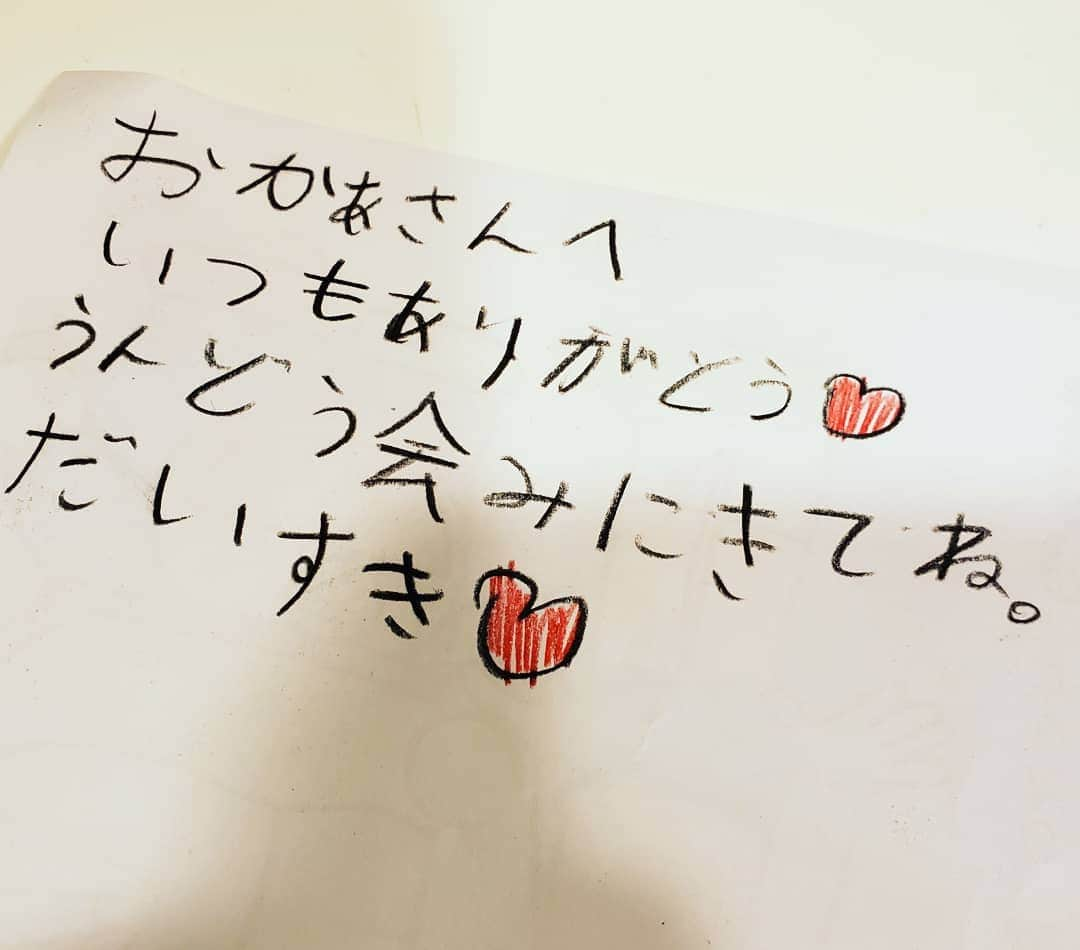 おかあさんへ
いつもありがとう
うんどう会みにきてね。
だいすき